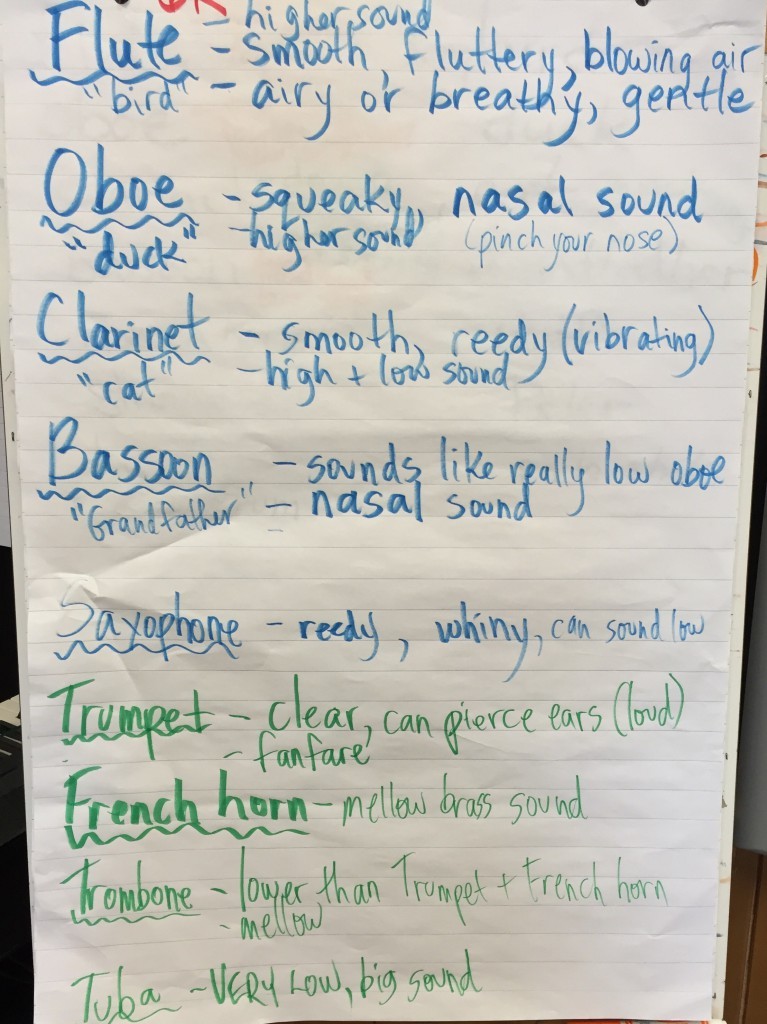 - higher sound
Flute - smooth, fluttery, blowing air
"bird" - airy or breathy, gentle
Oboe - squeaky, nasal sound
"duck" - higher sound (pinch your nose)
Clarinet - smooth, reedy (vibrating)
"cat" - high + low sound
Bassoon - sounds like really low oboe
"Grandfather" - nasal sound
Saxophone - reedy, whiny, can sound low
Trumpet - clear, can pierce ears (loud)
- fanfare
French horn - mellow brass sound
Trombone - lower than Trumpet + French horn
- mellow
Tuba - VERY LOW, big sound